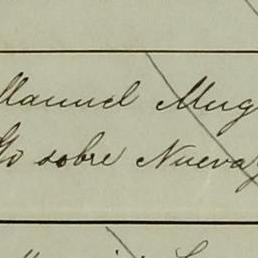 Manuel Mug
Go sobre Nueva